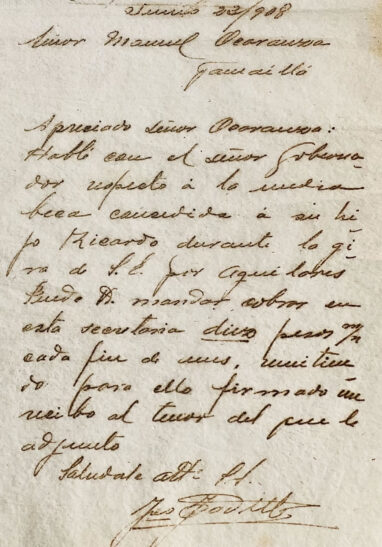 Junio 23/908
Señor Manuel Ocaransa
Famaillá
Apreciado señor Ocaransa:
Hablé con el señor Goberna-
dor respecto á la media
beca concedida á su hi-
jo Ricardo durante la gi-
ra de S.E. por Aguilares
Puede V. mandar cobrar en
esta secretaria diez pesos m/n
cada fin de mes, remitien-
do para ello firmado un
recibo al tenor del que le
adjunto
Saludale atte S.S.